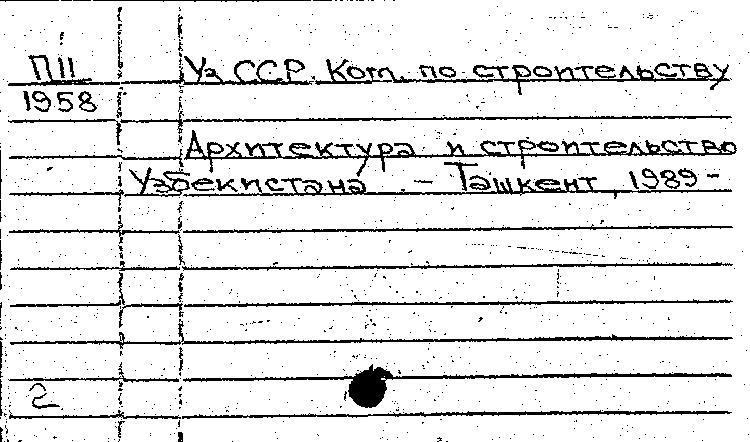 ПІІ Уз ССР. Ком. по строительству
1958
Архитектура и строительство
Узбекистана. — Ташкент, 1989 -
2